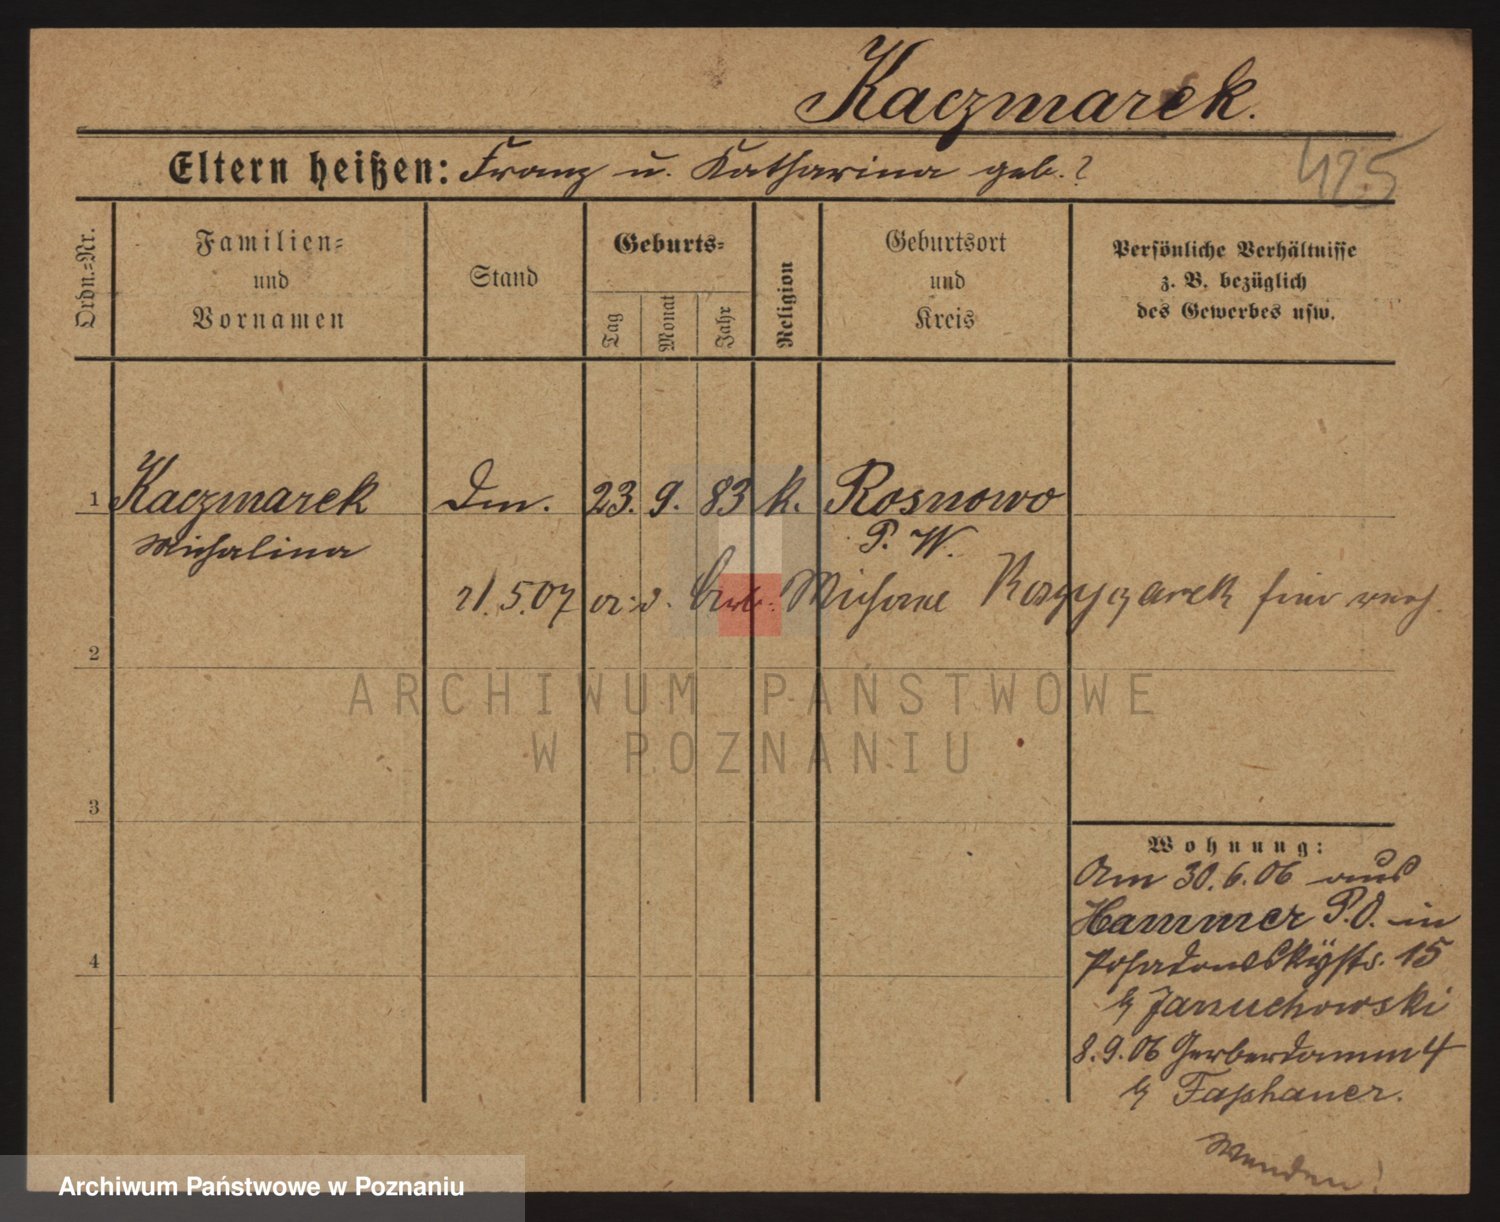 Kaczmarek.
Eltern heißen: Franz u. Katharina geb. ?
425
Ordn.=Nr.
Familien=
und
Vornamen
Stand
Geburts=
Tag
Monat
Jahr
Religion
Geburtsort
und
Kreis
Persönliche Verhältnisse
z. B. bezüglich
des Gewerbes usw.
1 Kaczmarek Dm. 23. 9. 83 k. Rosnowo
Michalina P. W.
21.5.07 Michael hier verh.
2
ARCHIWUM PAŃSTWOWE
W POZNANIU
3
4
Wohnung:
Am 30.6.06 aus
Hammer P.O. in
Posadowskystr. 15
b/ Januchowski
8.9.06 Gerberdamm 4
b/ Faßhauer.
Wenden!
Archiwum Państwowe w Poznaniu